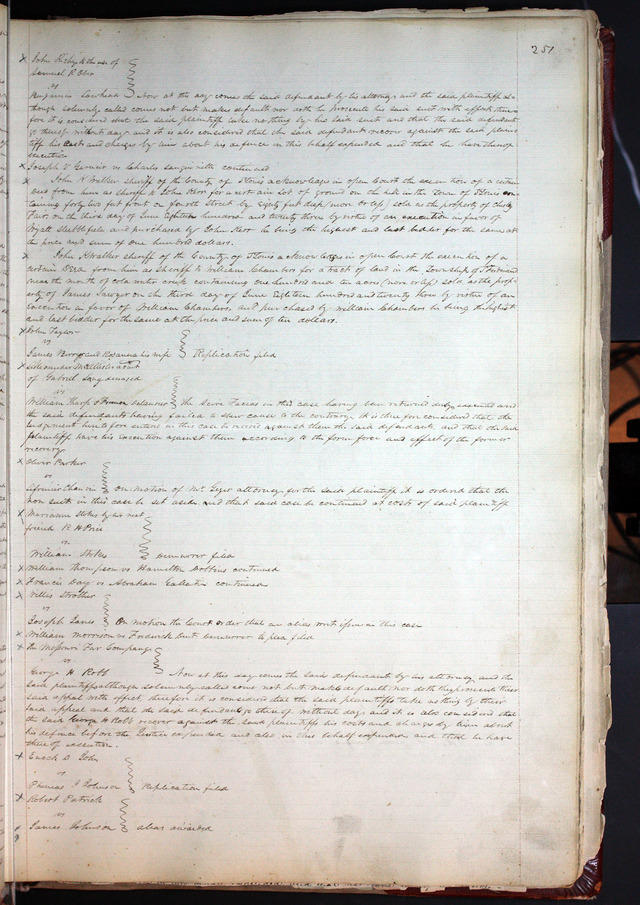 251
x John Rigby to the use of
Samuel R Ober
vs
Benjamin Lawhead Now at this day comes the said defendant by his attorney and the said plaintiff al-
though solemnly called comes not but makes default nor doth he prosecute his said suit with effect there-
fore it is considered that the said plaintiff take nothing by his said suit and that the said defendant
go thereof without day and it is also considered that the said defendant recover against the said plain-
tiff his costs and charges by him about his defence in this behalf expended and that he have thereof
execution
x Joseph V Garnier vs Charles Sanguinette continued
x John K Walker sheriff of the County of St Louis acknowledges in open Court the execution of a certain
Deed from him as sheriff to John Kerr for a certain lot of ground on the hill in the Town of St Louis con-
taining forty two feet front on Fourth Street by Eighty feet deep (more or less) sold as the property of
on the third day of June Eighteen hundred and twenty three by virtue of an execution in favor of
Wyatt Stubblefield and purchased by John Kerr he being the highest and last bidder for the same at
the price and sum of one hundred dollars.
x John K Walker sheriff of the County of St Louis acknowledges in open Court the execution of a
certain Deed from him as Sheriff to William Chambers for a tract of land in the Township of St Ferdinand
near the mouth of cold water creek containing one hundred and ten acres (more or less) sold as the prop-
erty of James Sawyer on the third day of June Eighteen hundred and twenty three by virtue of an
execution in favor of William Chambers, and purchased by William Chambers he being the highest
and last bidder for the same at the price and sum of ten dollars.
x John Taylor
vs
James Berry and Rosanna his wife Replication filed
x Alexander McAllister
of Gabriel Long deceased
vs
William Tharp The Scire Facias in this case having been returned duly executed and
the said defendants having failed to shew cause to the contrary, it is therefore considered that the
judgment heretofore entered in this case be revived against them the said defendants and that the said
plaintiff have his execution against them according to the form force and effect of the former
recovery.
x Oliver Parker
vs
On motion of Mr Geyer attorney for the said plaintiff it is ordered that the
non suit in this case be set aside and that said case be continued at costs of said plaintiff
x Marianne Stokes by her next
friend R H Price
vs
William Stokes Demurrer filed
x William Thompson vs Hamilton Robbins continued
x Francis Day vs Abraham Gallatin continued
x Willis Strother
vs
Joseph James On motion the Court order that an alias writ issue in this case
x William Morrison vs Frederick Dent demurrer to plea filed
x the Missouri Fur Company
vs
George H Robb Now at this day comes the said defendant by his attorney and the
said plaintiffs although solemnly called come not but make default nor doth they prosecute their
said appeal with effect, therefore it is considered that the said plaintiffs take nothing by their
said appeal and that the said defendant go thereof without day and it is also considered that
the said George H Robb recover against the said plaintiffs his costs and charges by him about
his defence before the Justice expended and also in this behalf expended and that he have
thereof execution.
x Enoch D John
vs
Phineas J Johnson Replication filed
x Robert Patrick
vs
James Johnson alias awarded